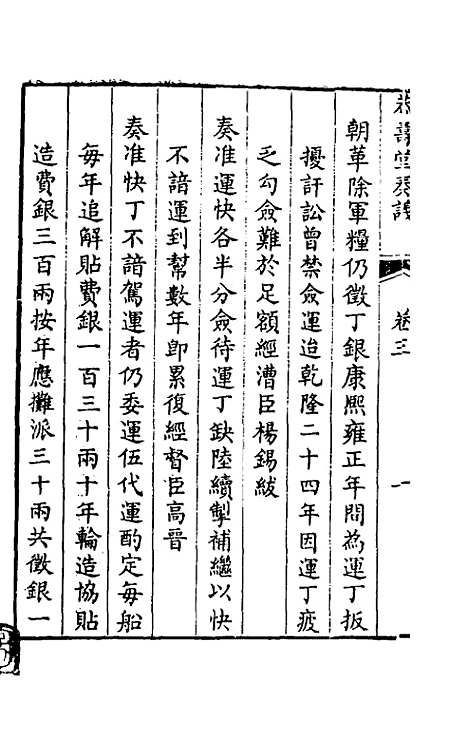 朝革除軍糧仍徵丁銀康熙雍正年間為運丁扳
擾訐訟曾禁僉運迨乾隆二十四年因運丁疲
乏勾僉難於足額經漕臣楊錫紱
奏准運快各半分僉待運丁缺陸續掣補繼以快
不諳運到幫數年即累復經督臣高晉
奏准快丁不諳駕運者仍委運伍代運酌定每船
每年追解貼費銀一百三十兩十年輪造協貼
造費銀三百兩按年應攤派三十兩共徵銀一
壽堂奏議
卷三
一